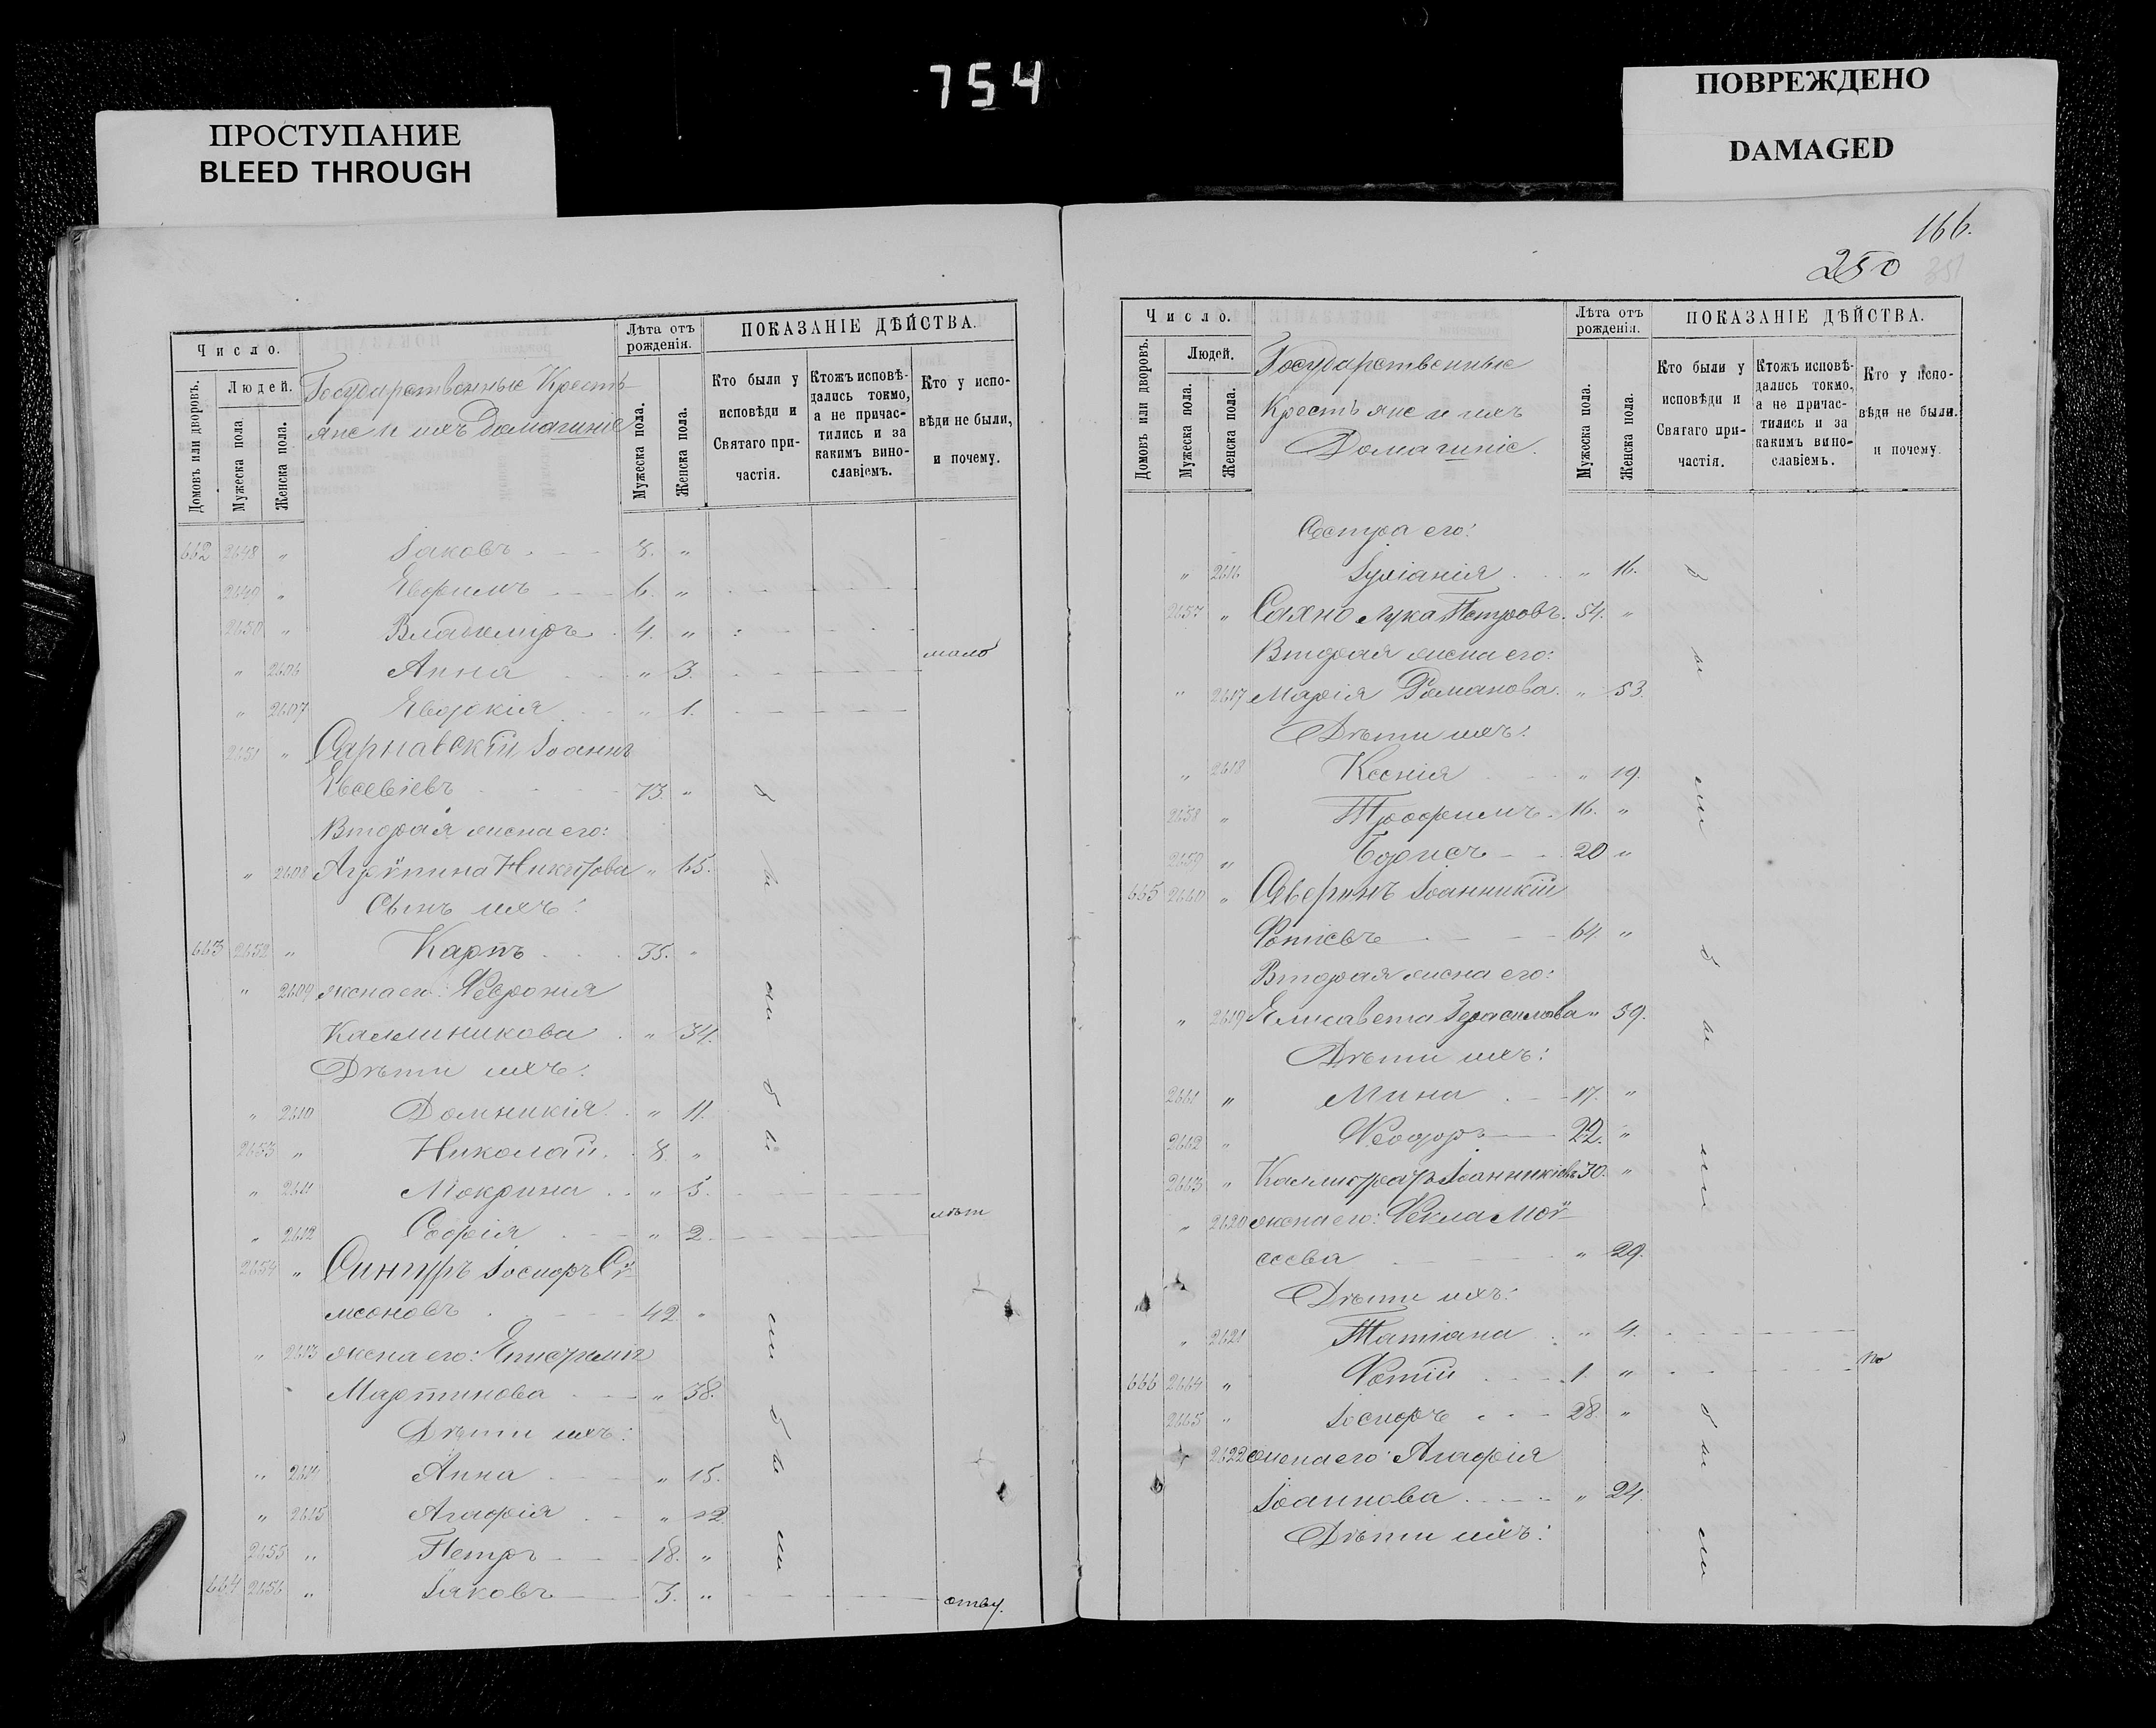 754
ПРОСТУПАНИЕ
BLEED THROUGH
ПОВРЕЖДЕНО
DAMAGED
Число.
Людей.
Домовъ или дворовъ.
Мужеска пола
Женска пола.
Государственные Кресть-
яне и ихъ Домашніе
Лѣта отъ рожденія.
Мужеска пола.
Женска пола.
ПОКАЗАНІЕ ДѢЙСТВА.
Кто были у исповѣди и Святаго при-частія.
Ктожъ исповѣ-дались токмо, а не причас-тились и за какимъ вино-славіемъ.
Кто у испо-вѣди не были, и почему.
662 2648 " Іаковъ 8. "
2649 " Евфимъ 6. "
2650 " Владиміръ 4. "
" 2606 Анна " 3. мало
" 2607 Евдокія " 1.
2651 " Сарнавскій Іоаннъ
Евсевіевъ 73. "
Вторая жена его:
" 2608 Агрѵпина Никитова " 65.
Сынъ ихъ:
663 2652 " Карпъ 35. "
" 2609 жена его: Ѳеврония
Каллиникова " 34.
Дѣти ихъ:
" 2610 Домникія " 11.
2653 " Николай 8. "
" 2611 Мокрина " 5.
" 2612 Софія " 2. лѣт
2654 " Сингуръ Іосифъ Сѵ-
меоновъ 42. "
" 2613 жена его:
Мартинова " 38.
Дѣти ихъ:
" 2614 Анна " 15.
" 2615 Агафія " 12.
2655 " Петръ 18. "
664 2656 " Іаковъ 3. " отву.
были
были
были
166.
250
351
Число.
Людей.
Домовъ или дворовъ.
Мужеска пола.
Женска пола.
Государственные
Крестьяне и ихъ
Домашніе.
Лѣта отъ рожденія.
Мужеска пола.
Женска пола.
ПОКАЗАНІЕ ДѢЙСТВА.
Кто были у исповѣди и Святаго при-частія.
Ктожъ исповѣ-дались токмо, а не причас-тились и за какимъ вино-славіемъ.
Кто у испо-вѣди не были. и почему.
Сестра его:
" 2616 Іуліанія " 16.
2657 " Сахно Лука Петровъ. 54. "
Вторая жена его:
" 2617 Марія Романова " 53.
Дѣти ихъ:
" 2618 Ксенія " 19.
2658 " Трофимъ 16. "
2659 " Борисъ 20 "
665 2660 " Аверинъ Іоанникій
Фотіевъ 64 "
Вторая жена его:
" 2619 Елисавета Герасимова " 59.
Дѣти ихъ:
2661 " Мина 17. "
2662 " Ѳеодоръ 22. "
2663 " Каллистратъ Іоанникіевъ 30. "
" 2620 жена его: Ѳекла Моѵ-
сеева " 29.
Дѣти ихъ:
" 2621 Татіана " 4.
666 2664 " Фотій 1. " по
2665 " Іосифъ 28. "
2622 жена его: Агафія
Іоаннова " 24.
Дѣти ихъ:
были
были
были